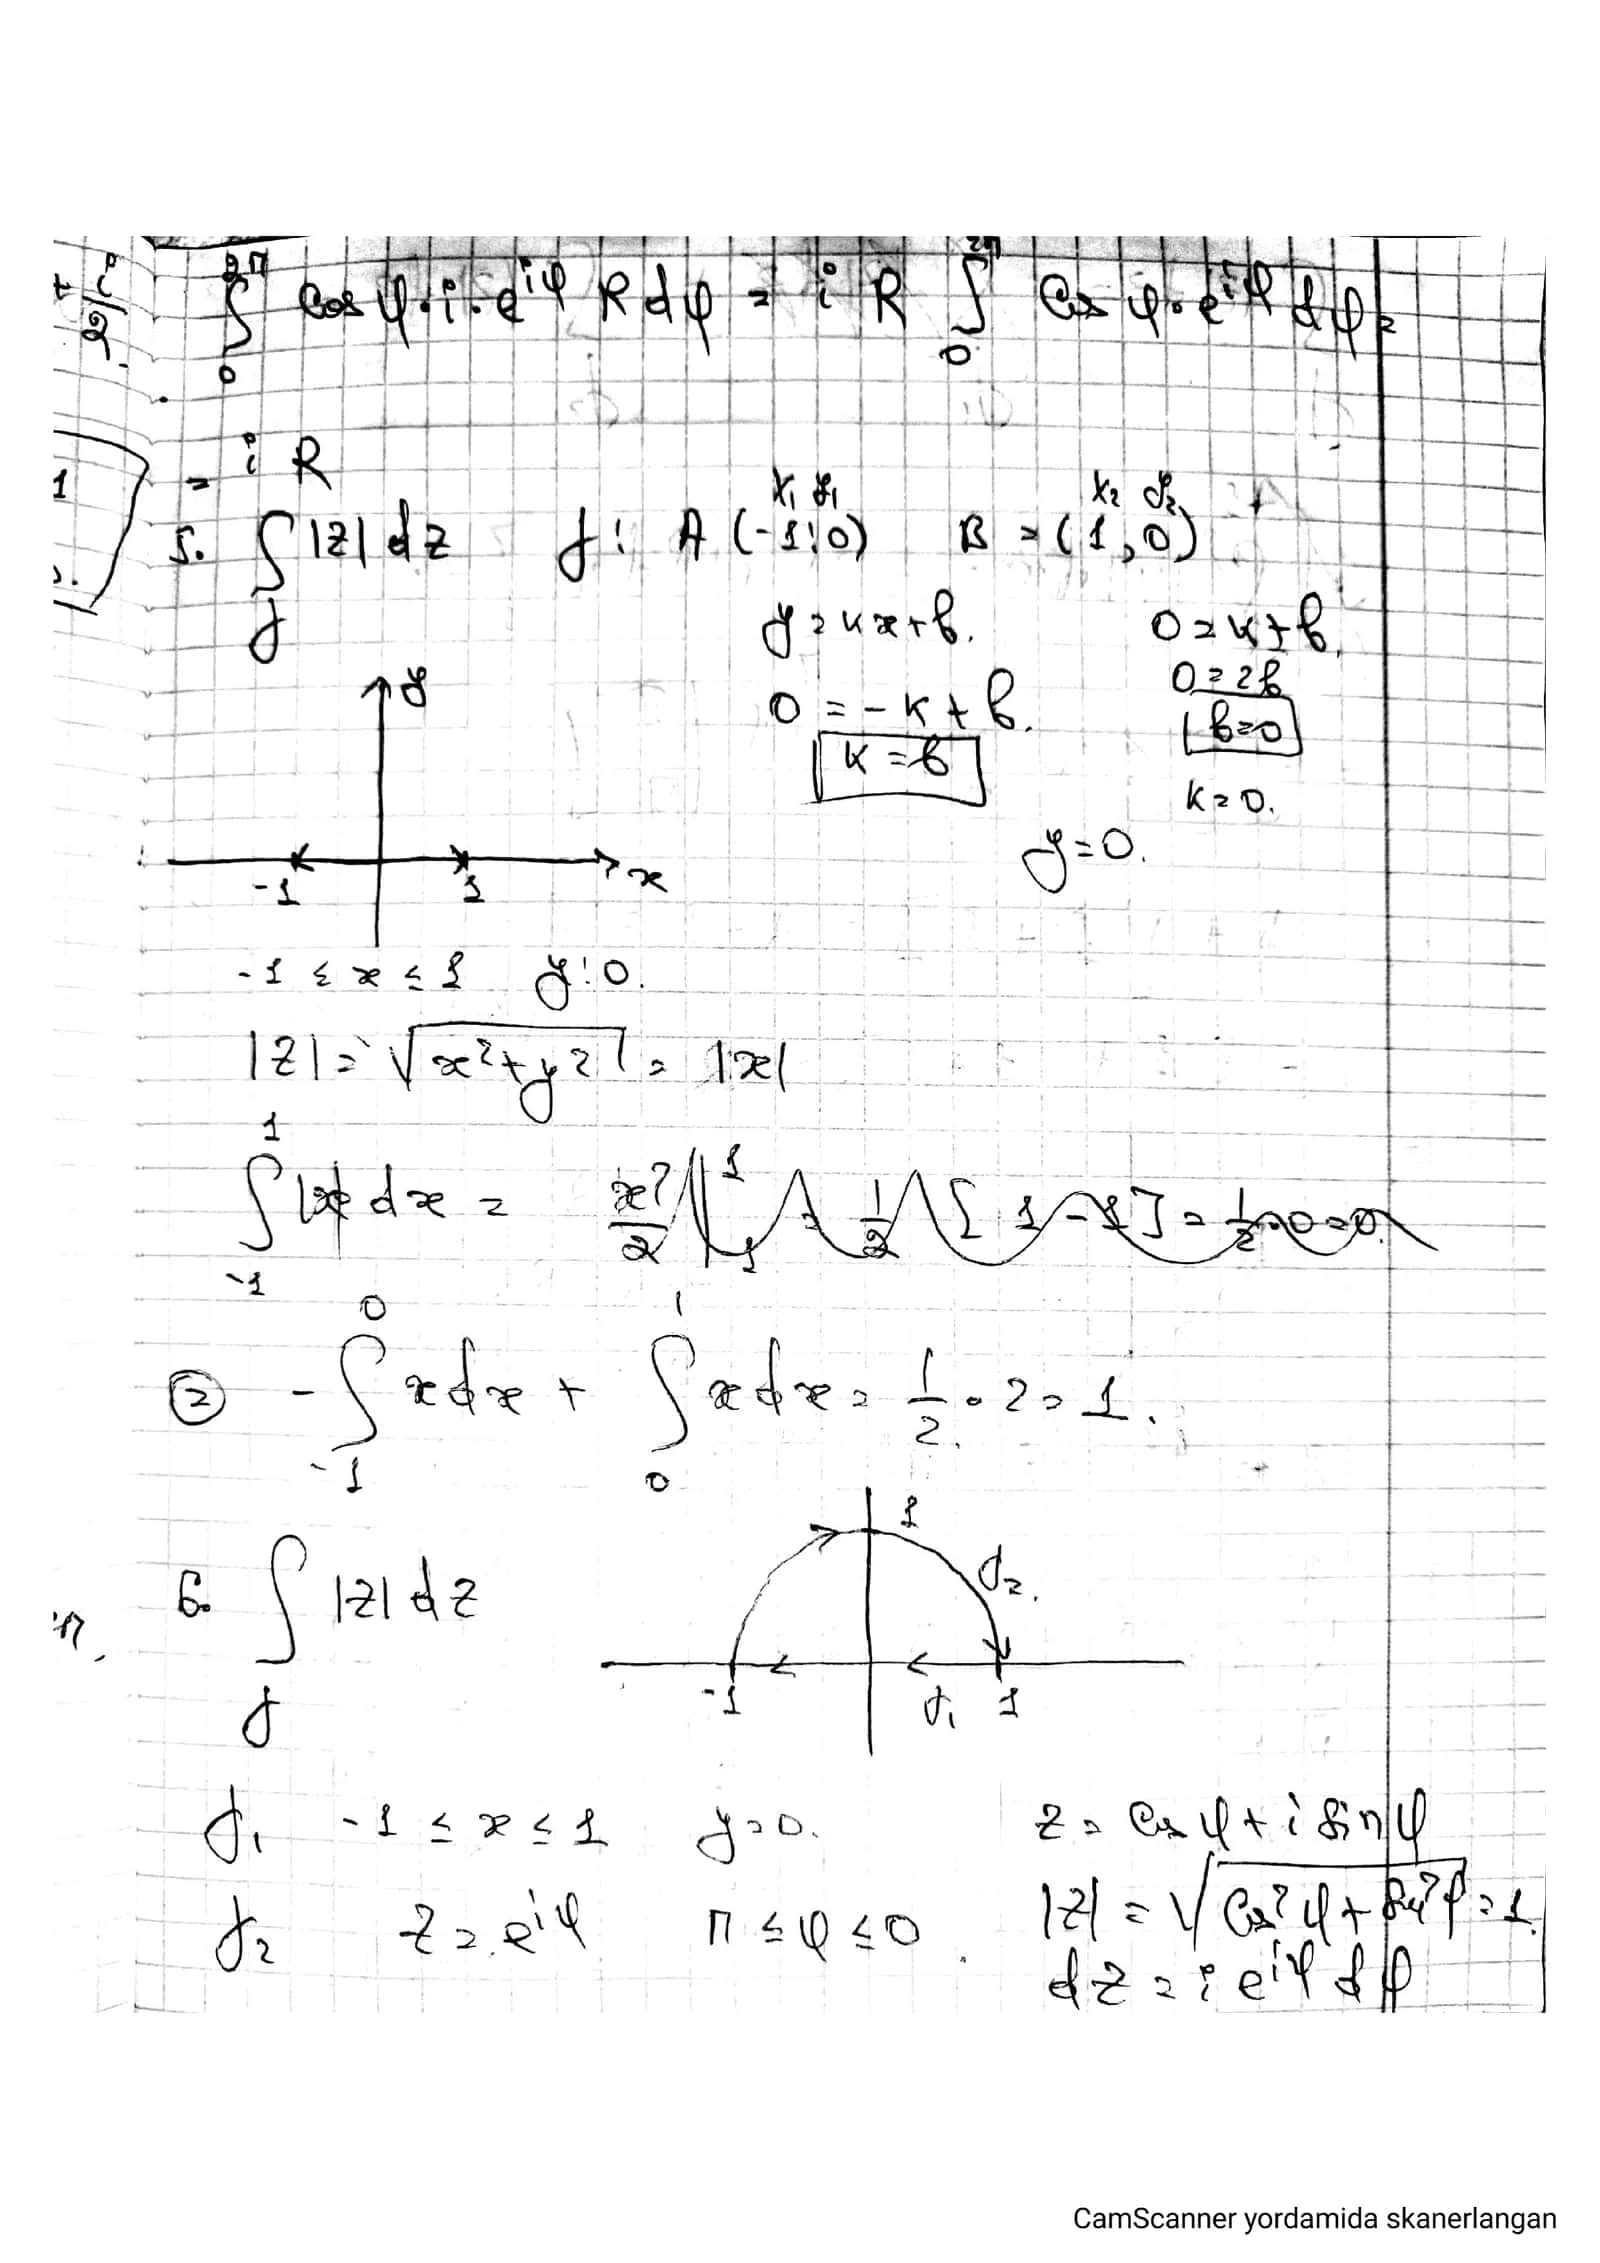 + i/2.
2π ∫ 0 cos φ · i · e^{iφ} R dφ = i R 2π ∫ 0 cos φ · e^{iφ} dφ =
= i R
1
5. ∫_γ |z| dz γ: A (-1; 0) B = (1, 0)
x₁ y₁ x₂ y₂
y = kx + b. 0 = k + b,
0 = -k + b. 0 = 2b
k = b b = 0
k = 0.
y = 0.
y
-1 1 x
-1 ≤ x ≤ 1 y: 0.
|z| = √(x² + y²) = |x|
1 ∫ -1 |x| dx = x²/2 |₋₁¹ = 1/2 [1 - 1] = 1/2 · 0 = 0.
② - 0 ∫ -1 x dx + 1 ∫ 0 x dx = 1/2 · 2 = 1.
6. ∫_γ |z| dz
1
γ₂.
-1 γ₁ 1
γ₁ -1 ≤ x ≤ 1 y = 0. z = cos φ + i sin φ
γ₂ z = e^{iφ} π ≤ φ ≤ 0. |z| = √(cos² φ + sin² φ) = 1.
dz = i e^{iφ} dφ
CamScanner yordamida skanerlangan